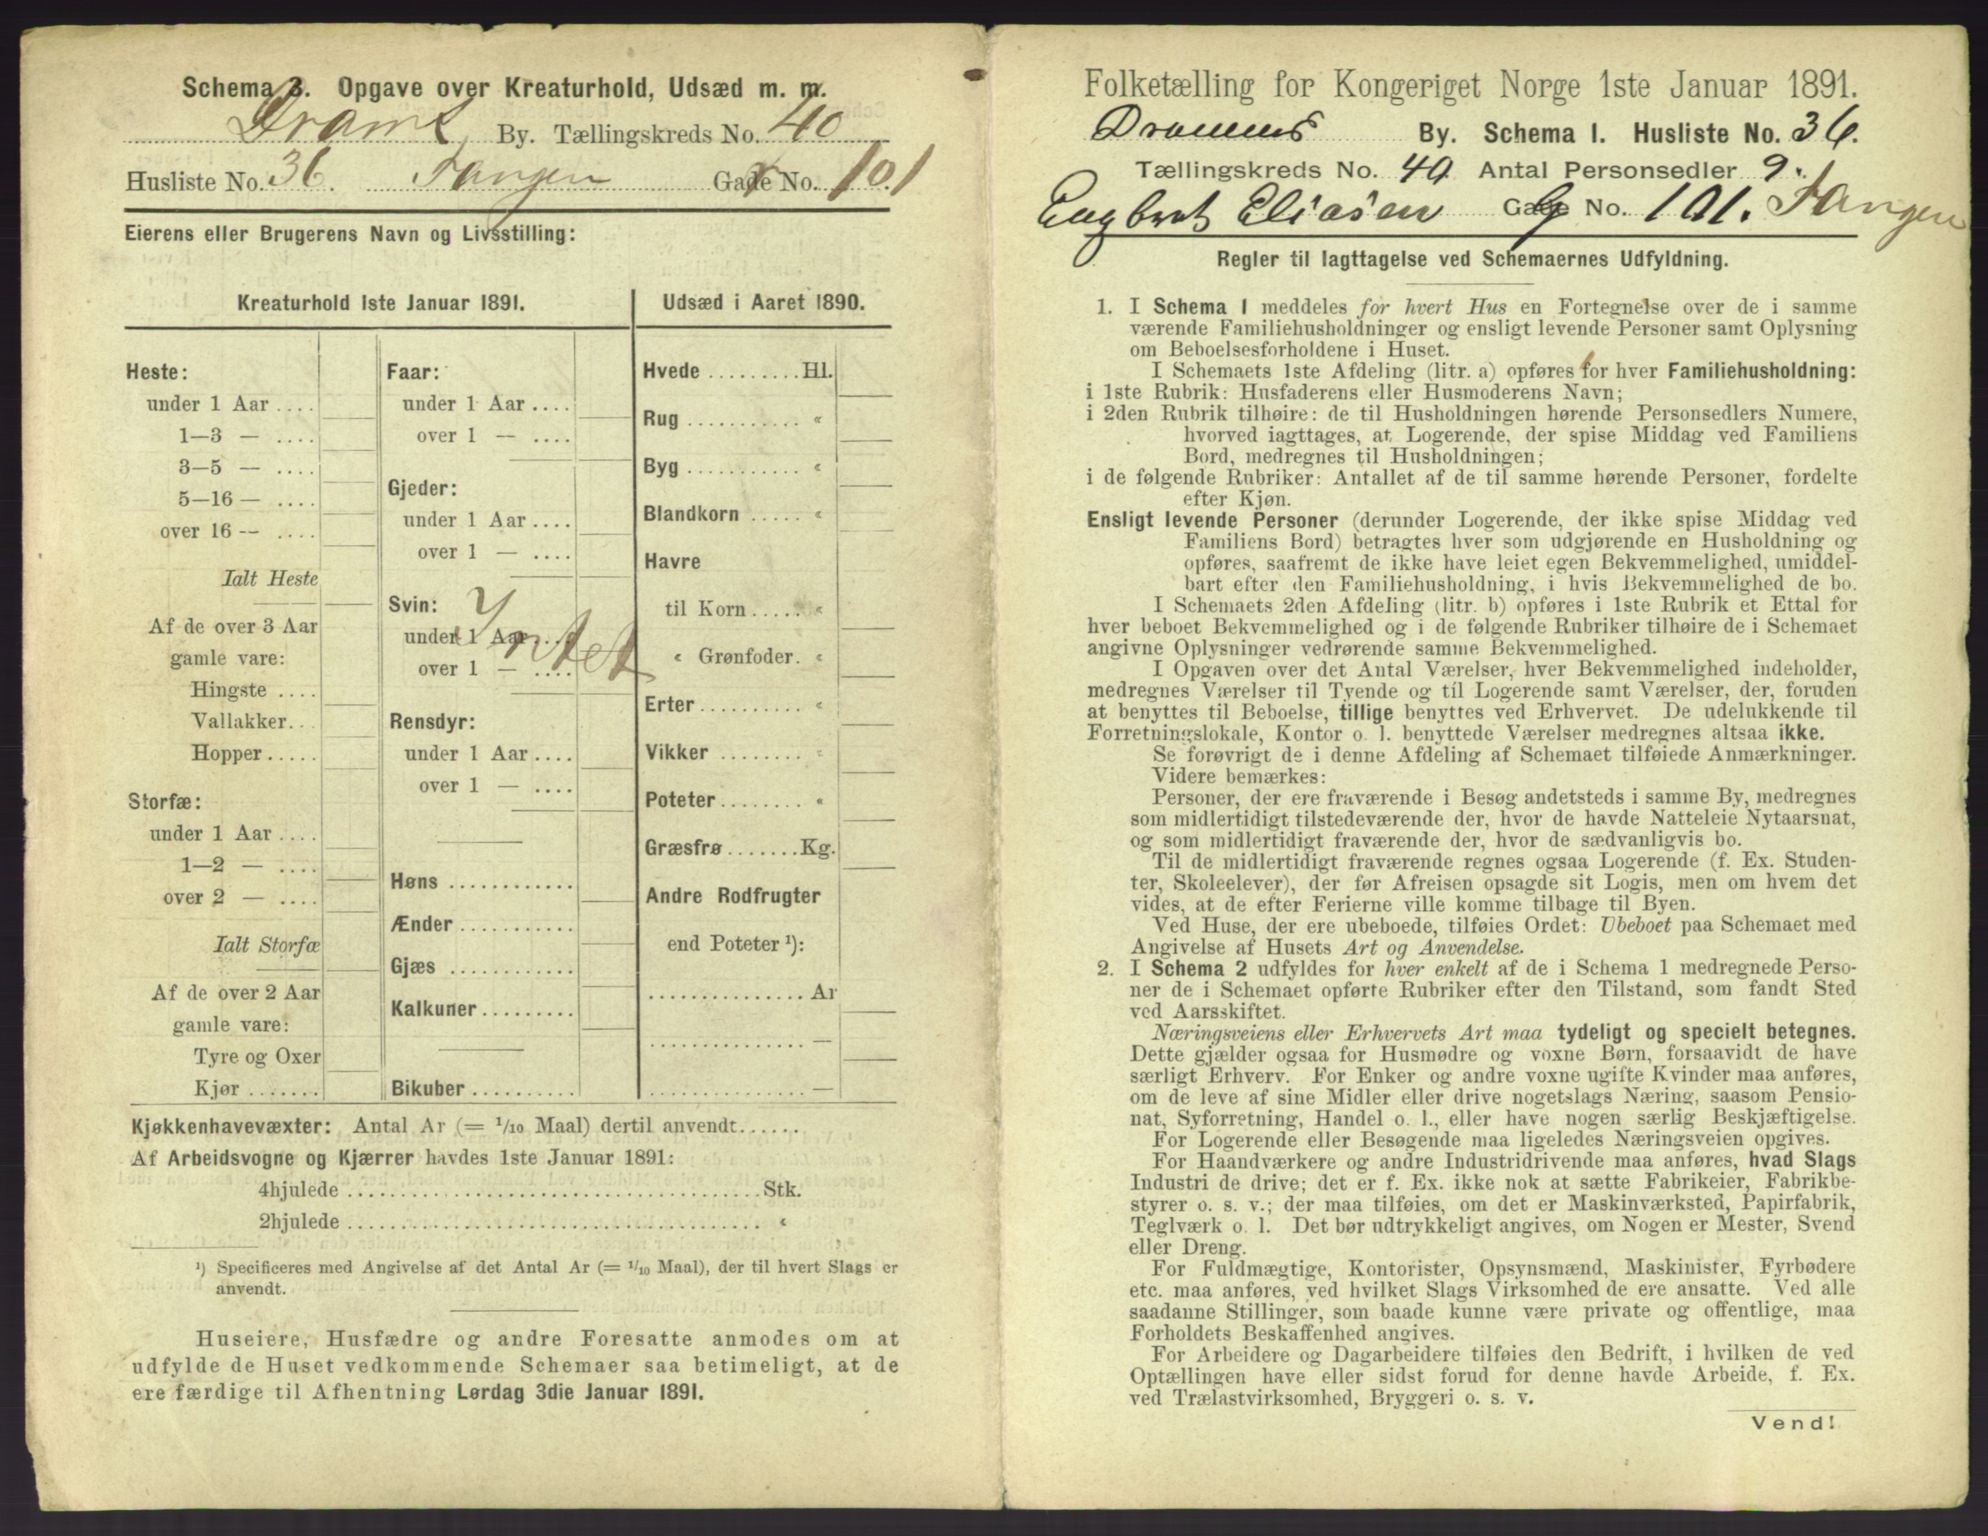 Schema 3. Opgave over Kreaturhold, Udsæd m. m.
Dramš By. Tællingskreds No. 40
Husliste No. 36. Tangen Gade No. 101
Eierens eller Brugerens Navn og Livsstilling:
Kreaturhold 1ste Januar 1891.
Heste:
under 1 Aar ....
1—3 — ....
3—5 — ....
5—16 — ....
over 16 — ....
Ialt Heste
Af de over 3 Aar
gamle vare:
Hingste ....
Vallakker...
Hopper.....
Storfæ:
under 1 Aar ....
1—2 — ....
over 2 — ....
Ialt Storfæ
Af de over 2 Aar
gamle vare:
Tyre og Oxer
Kjør .......
Faar:
under 1 Aar ....
over 1 — ....
Gjeder:
under 1 Aar ....
over 1 — ....
Svin:
under 1 Aar ....
over 1 — ....
Intet
Rensdyr:
under 1 Aar ....
over 1 — ....
Høns ............
Ænder ...........
Gjæs ............
Kalkuner.........
Bikuber ..........
Udsæd i Aaret 1890.
Hvede .........Hl.
Rug ........... "
Byg ........... "
Blandkorn ..... "
Havre
til Korn ..... "
" Grønfoder. "
Erter.......... "
Vikker ........ "
Poteter........ "
Græsfrø.......Kg.
Andre Rodfrugter
end Poteter ¹):
............... Ar
............... —
............... —
Kjøkkenhavevæxter: Antal Ar (= 1/10 Maal) dertil anvendt......
Af Arbeidsvogne og Kjærrer havdes 1ste Januar 1891:
4hjulede ........................................Stk.
2hjulede ........................................ "
¹) Specificeres med Angivelse af det Antal Ar (= 1/10 Maal), der til hvert Slags er
anvendt.
Huseiere, Husfædre og andre Foresatte anmodes om at
udfylde de Huset vedkommende Schemaer saa betimeligt, at de
ere færdige til Afhentning Lørdag 3die Januar 1891.
Folketælling for Kongeriget Norge 1ste Januar 1891.
Drammens By. Schema 1. Husliste No. 36.
Tællingskreds No. 40 Antal Personsedler 9.
Engbret Eliasen Gade No. 101. Tangen
Regler til Iagttagelse ved Schemaernes Udfyldning.
1. I Schema 1 meddeles for hvert Hus en Fortegnelse over de i samme
værende Familiehusholdninger og ensligt levende Personer samt Oplysning
om Beboelsesforholdene i Huset.
I Schemaets 1ste Afdeling (litr. a) opføres for hver Familiehusholdning:
i 1ste Rubrik: Husfaderens eller Husmoderens Navn;
i 2den Rubrik tilhøire: de til Husholdningen hørende Personsedlers Numere,
hvorved iagttages, at Logerende, der spise Middag ved Familiens
Bord, medregnes til Husholdningen;
i de følgende Rubriker: Antallet af de til samme hørende Personer, fordelte
efter Kjøn.
Ensligt levende Personer (derunder Logerende, der ikke spise Middag ved
Familiens Bord) betragtes hver som udgjørende en Husholdning og
opføres, saafremt de ikke have leiet egen Bekvemmelighed, umiddel-
bart efter den Familiehusholdning, i hvis Bekvemmelighed de bo.
I Schemaets 2den Afdeling (litr. b) opføres i 1ste Rubrik et Ettal for
hver beboet Bekvemmelighed og i de følgende Rubriker tilhøire de i Schemaet
angivne Oplysninger vedrørende samme Bekvemmelighed.
I Opgaven over det Antal Værelser, hver Bekvemmelighed indeholder,
medregnes Værelser til Tyende og til Logerende samt Værelser, der, foruden
at benyttes til Beboelse, tillige benyttes ved Erhvervet. De udelukkende til
Forretningslokale, Kontor o. l. benyttede Værelser medregnes altsaa ikke.
Se forøvrigt de i denne Afdeling af Schemaet tilføiede Anmærkninger.
Videre bemærkes:
Personer, der ere fraværende i Besøg andetsteds i samme By, medregnes
som midlertidigt tilstedeværende der, hvor de havde Natteleie Nytaarsnat,
og som midlertidigt fraværende der, hvor de sædvanligvis bo.
Til de midlertidigt fraværende regnes ogsaa Logerende (f. Ex. Studen-
ter, Skoleelever), der før Afreisen opsagde sit Logis, men om hvem det
vides, at de efter Ferierne ville komme tilbage til Byen.
Ved Huse, der ere ubeboede, tilføies Ordet: Ubeboet paa Schemaet med
Angivelse af Husets Art og Anvendelse.
2. I Schema 2 udfyldes for hver enkelt af de i Schema 1 medregnede Perso-
ner de i Schemaet opførte Rubriker efter den Tilstand, som fandt Sted
ved Aarsskiftet.
Næringsveiens eller Erhvervets Art maa tydeligt og specielt betegnes.
Dette gjælder ogsaa for Husmødre og voxne Børn, forsaavidt de have
særligt Erhverv. For Enker og andre voxne ugifte Kvinder maa anføres,
om de leve af sine Midler eller drive nogetslags Næring, saasom Pensio-
nat, Syforretning, Handel o. l., eller have nogen særlig Beskjæftigelse.
For Logerende eller Besøgende maa ligeledes Næringsveien opgives.
For Haandværkere og andre Industridrivende maa anføres, hvad Slags
Industri de drive; det er f. Ex. ikke nok at sætte Fabrikeier, Fabrikbe-
styrer o. s. v.; der maa tilføies, om det er Maskinværksted, Papirfabrik,
Teglværk o. l. Det bør udtrykkeligt angives, om Nogen er Mester, Svend
eller Dreng.
For Fuldmægtige, Kontorister, Opsynsmænd, Maskinister, Fyrbødere
etc. maa anføres, ved hvilket Slags Virksomhed de ere ansatte. Ved alle
saadanne Stillinger, som baade kunne være private og offentlige, maa
Forholdets Beskaffenhed angives.
For Arbeidere og Dagarbeidere tilføies den Bedrift, i hvilken de ved
Optællingen have eller sidst forud for denne havde Arbeide, f. Ex.
ved Trælastvirksomhed, Bryggeri o. s. v.
Vend!